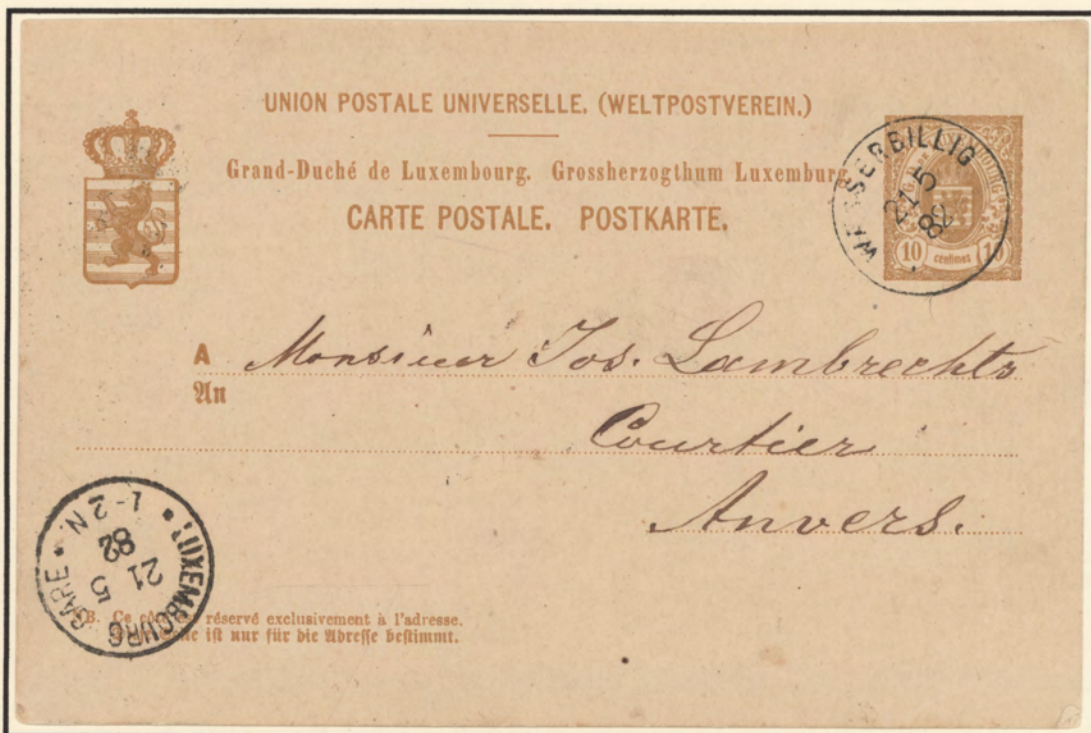 UNION POSTALE UNIVERSELLE. (WELTPOSTVEREIN.)
Grand-Duché de Luxembourg. Grossherzogthum Luxemburg.
CARTE POSTALE. POSTKARTE.
WASSERBILLIG
21 5
82
10 centimes 10
A Monsieur Jos. Lambrechts
An
Courtier
Anvers.
LUXEMBOURG GARE
21 5
82
1-2N
NB. Ce côté est réservé exclusivement à l'adresse.
ist nur für die Adresse bestimmt.